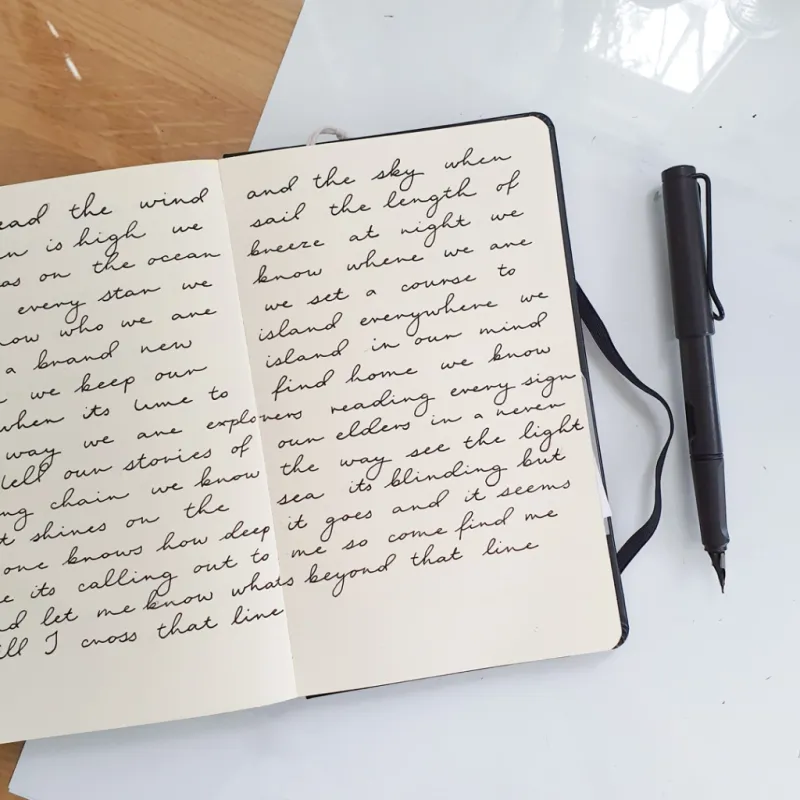 ead the wind and the sky when
n is high we sail the length of
as on the ocean breeze at night we
every star we know where we are
now who we are we set a course to
a brand new island everywhere we
we keep our island in our mind
when its time to find home we know
way we are explorers reading every sign
tell our stories of our elders in a never
ng chain we know the way see the light
t shines on the sea its blinding but
one knows how deep it goes and it seems
e its calling out to me so come find me
nd let me know whats beyond that line
ill I cross that line